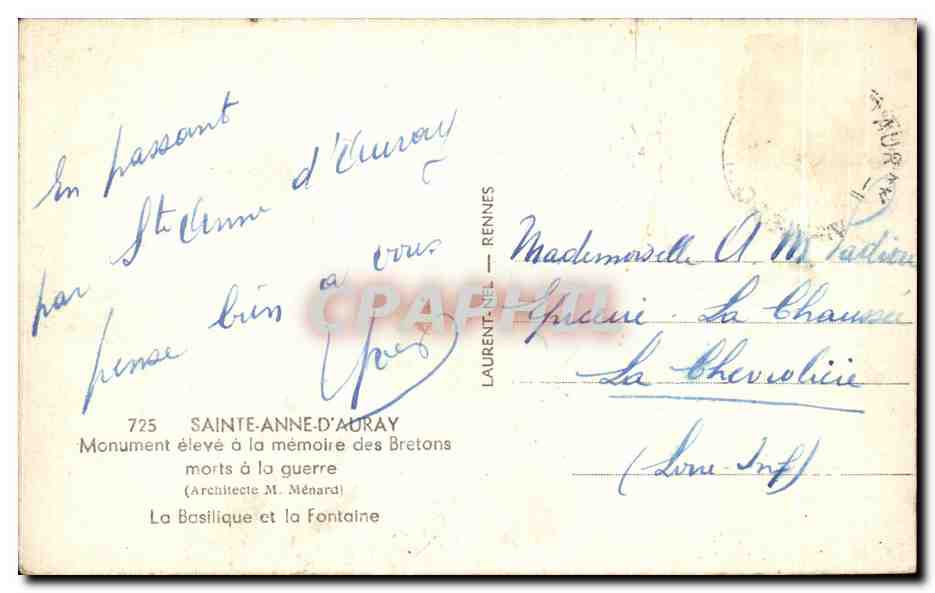 En passant
par Ste Anne d'Auray
pense bien à vous
725 SAINTE-ANNE-D'AURAY
Monument élevé à la mémoire des Bretons
morts à la guerre
(Architecte M. Ménard)
La Basilique et la Fontaine
LAURENT-NEL — RENNES
CPAPHIL
Mademoiselle A. M.
Epicerie - La Chaussée
La Chevrolière
(Loire-Inf)